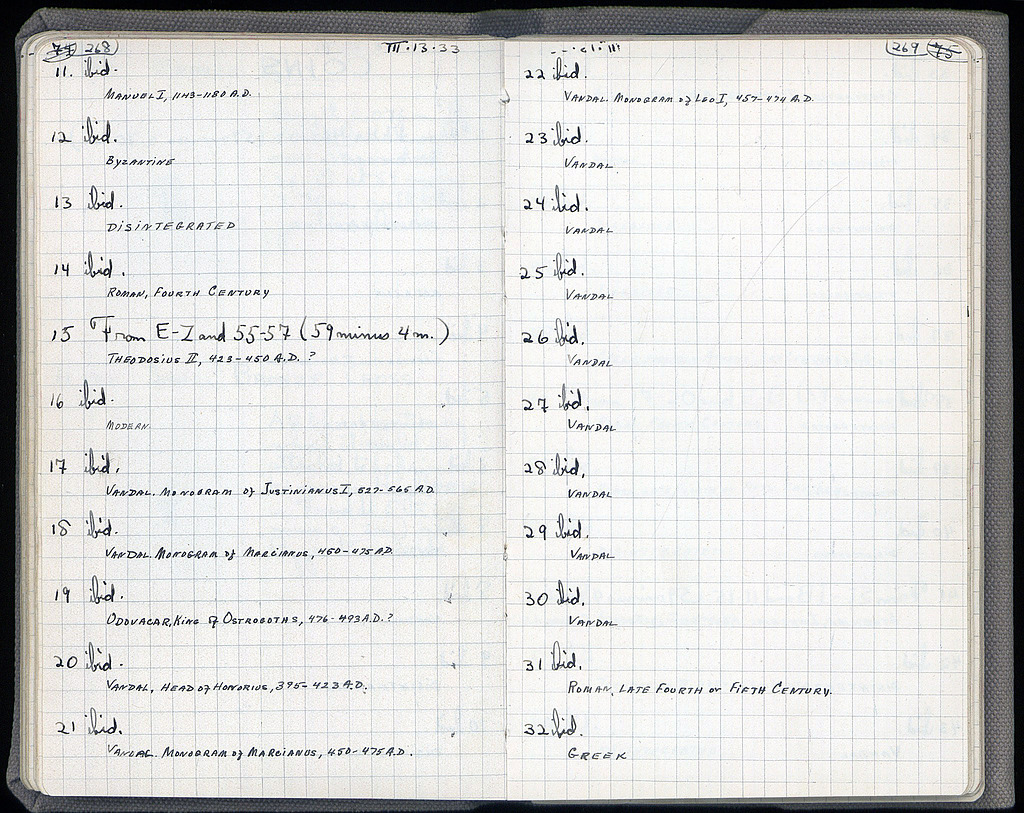 268
III·13·33
11. ibid.
MANUEL I, 1143-1180 A.D.
12 ibid.
BYZANTINE
13 ibid.
DISINTEGRATED
14 ibid.
ROMAN, FOURTH CENTURY
15 From E-Z and 55-57 (59 minus 4 m.)
THEODOSIUS II, 423-450 A.D. ?
16 ibid.
MODERN
17 ibid.
VANDAL. MONOGRAM of JUSTINIANUS I, 527-565 A.D.
18 ibid.
VANDAL. MONOGRAM of MARCIANUS, 450-475 A.D.
19 ibid.
ODOVACAR, KING of OSTROGOTHS, 476-493 A.D. ?
20 ibid.
VANDAL, HEAD of HONORIUS, 395-423 A.D.
21 ibid.
VANDAL. MONOGRAM of MARCIANUS, 450-475 A.D.
269 75
22 ibid.
VANDAL. MONOGRAM of LEO I, 457-474 A.D.
23 ibid.
VANDAL
24 ibid.
VANDAL
25 ibid.
VANDAL
26 ibid.
VANDAL
27 ibid.
VANDAL
28 ibid.
VANDAL
29 ibid.
VANDAL
30 ibid.
VANDAL
31 ibid.
ROMAN, LATE FOURTH or FIFTH CENTURY.
32 ibid.
GREEK